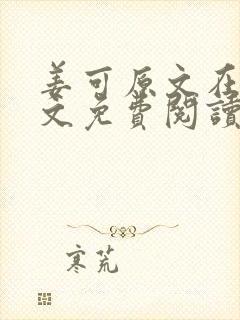 姜可原文在
文免費閱讀
寒荒